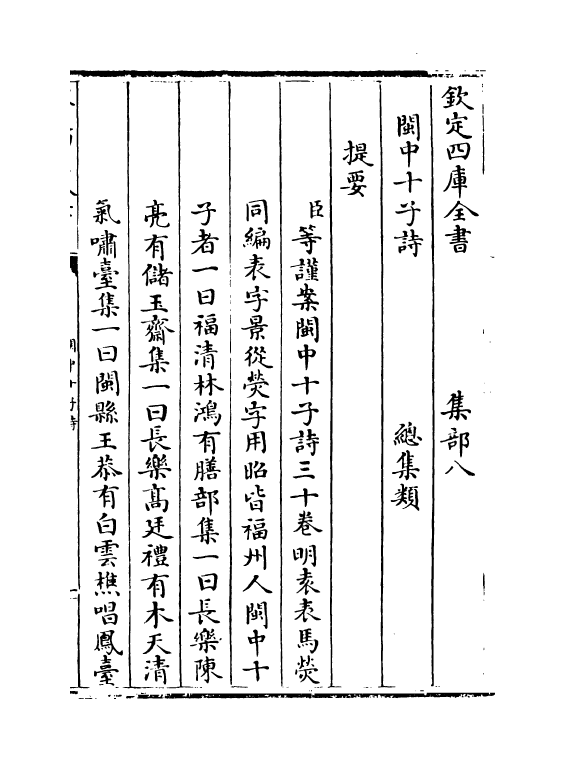 欽定四庫全書　集部八
閩中十子詩　總集類
提要
臣等謹案閩中十子詩三十卷明袁表馬熒
同編表字景從熒字用昭皆福州人閩中十
子者一曰福清林鴻有膳部集一曰長樂陳
亮有儲玉齋集一曰長樂髙廷禮有木天清
氣嘯臺集一曰閩縣王恭有白雲樵唱鳳臺
閩中十子詩